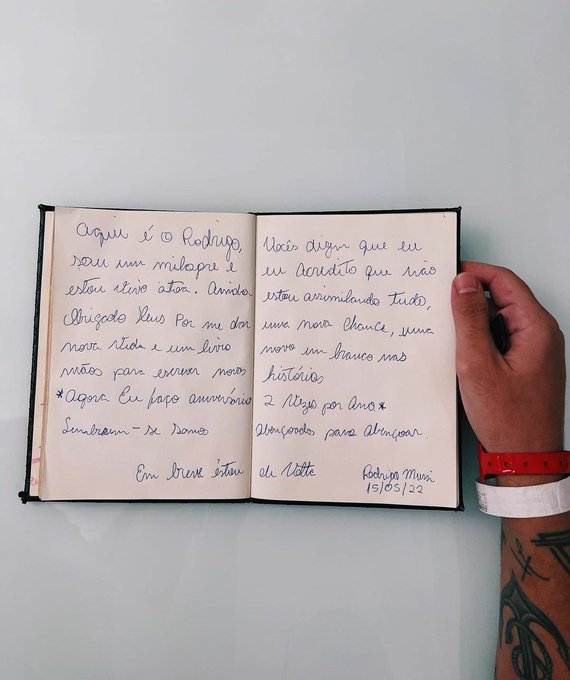 Aqui é o Rodrigo, Vocês dizem que eu
sou um milagre e eu acredito que não
estou vivo atoa. Ainda estou assimilando tudo,
Obrigado Deus por me dar uma nova chance, uma
nova vida e um livro novo em branco nas
mãos para escrever novas histórias
*Agora Eu faço aniversário 2 vezes por Ano*
Lembrem-se somos abençoados para abençoar.
Em breve estou de volta Rodrigo Mussi
15/05/22